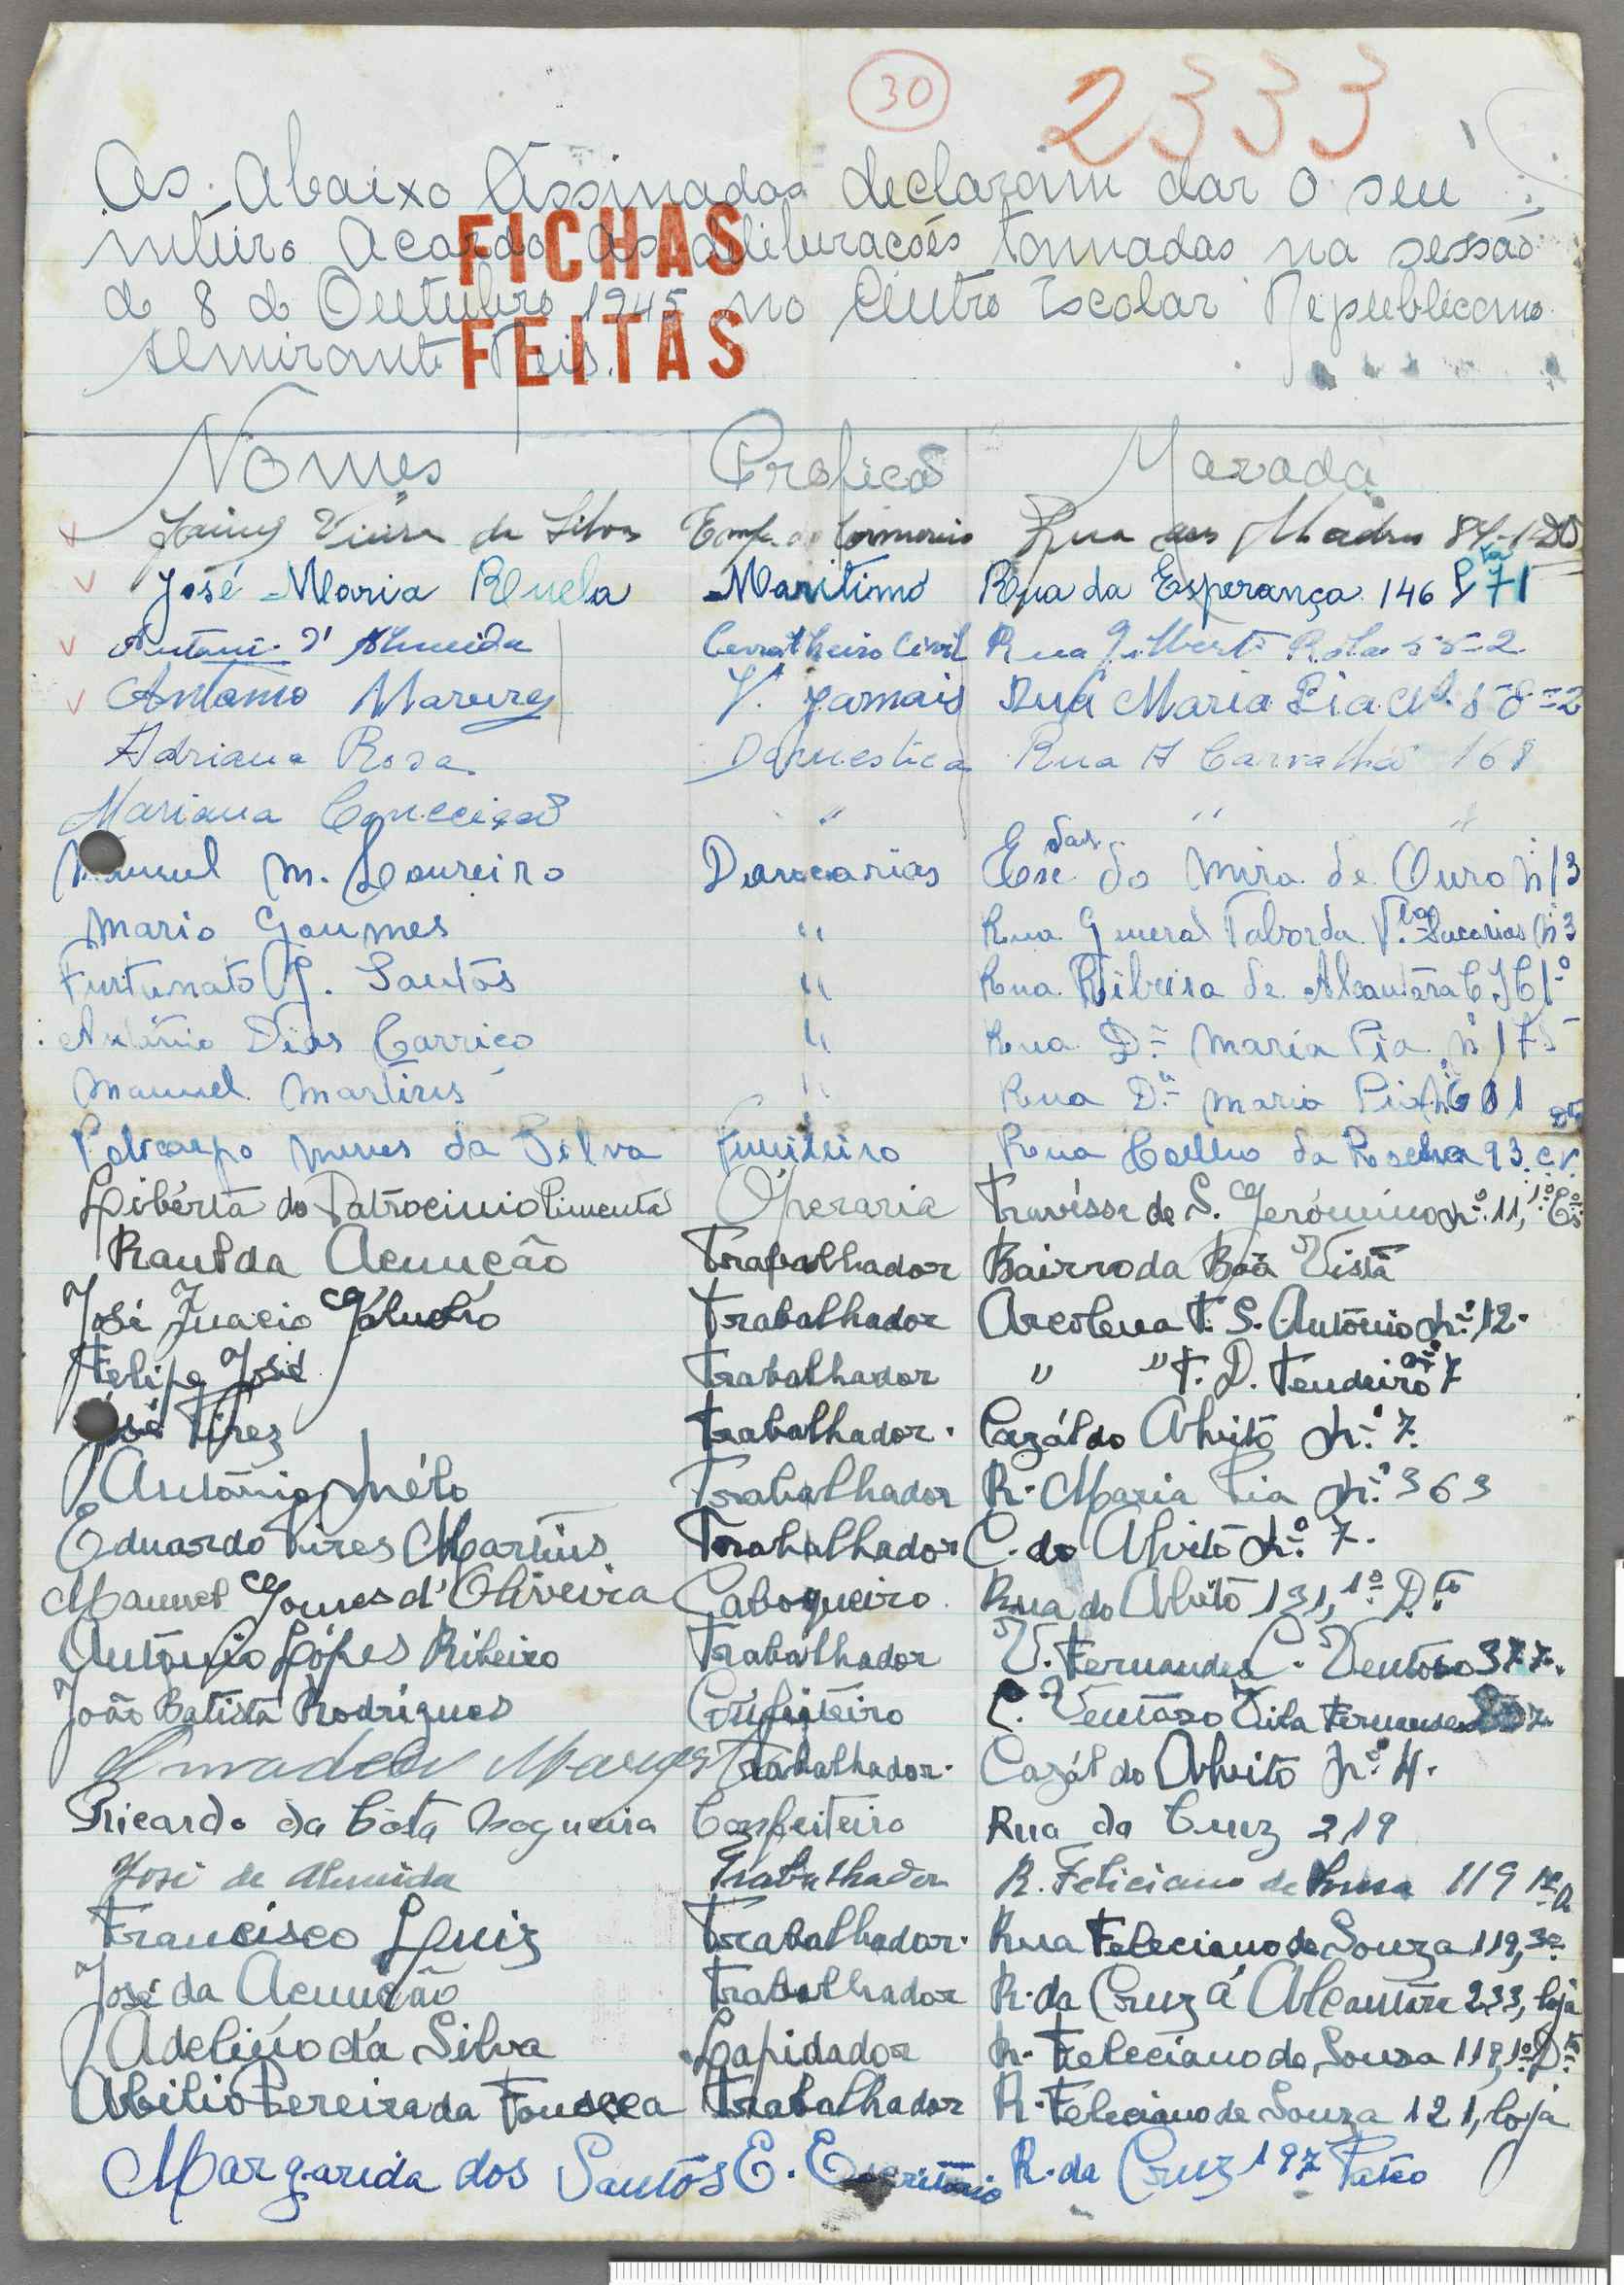 30
2333
Os Abaixo Assinados declaram dar o seu
inteiro Acordo as deliberações tomadas na sessão
de 8 de Outubro 1945 no Centro Escolar Republicano
Almirante Reis.
FICHAS
FEITAS
Nomes Profição Morada
Vieira da Silva Emp. Rua das Madres 84-
José Maria Ruela Maritimo Rua da Esperança 146
d'Almeida Civil Rua
António V. jornais Rua Maria Pia
Adriana Rosa Domestica Rua A Carvalho 168
Mariana Conceição " " "
Manuel M. Loureiro das do Mira de Ouro n 13
Mario Goumes " Rua General Taborda
Furtunato G. Santos " Rua Ribeira de Alcantara
António Dias Carriço " Rua D.ª Maria Pia
Manuel Martires " Rua D.ª Maria
Policarpo Nunes da Silva Funileiro Rua Coelho da Rocha 93 cv.
Libérta do Patrocinio Pimenta Óperaria Travéssa de S. Gerónimo n.º 11, 1º
Raul da Acunção Trabalhador Bairro da Bôa Vista
José Inacio Trabalhador Arcolena T. S. António n.º 12.
Felipe José Trabalhador " " T. D. Tendeiro 7
José Pirez Trabalhador. Cazál do Alvito n.º 7.
António Mélo Trabalhador R. Maria Pia n.º 363
Eduardo Pires Martins Trabalhador C. do Alvito n.º 7.
Manuel Gomes d'Oliveira Caboqueiro Rua do Alvito 131, 1º D.to
António Lópes Ribeiro Trabalhador V. Fernandes C. Ventoso 377.
João Batista Rodrigues Confeiteiro C. Ventozo Vila Fernandes
Amadeu Marques Trabalhador. Cazál do Alvito n.º 4.
Ricardo da Costa Nogueira Confeiteiro Rua da Cruz 219
José de Almeida Trabalhador R. Feliciano de Sousa 119
Francisco Luiz Trabalhador. Rua Feleciano de Souza 119, 3º
José da Acunção Trabalhador R. da Cruz á Alcantára 233, loja
Adelino da Silva Lapidador R. Feleciano de Sousa 119, 1º D.to
Abilio Pereira da Fonseca Trabalhador R. Feleciano de Souza 121, loja
Margarida dos Santos E. Escritório R. da Cruz 197 Páteo